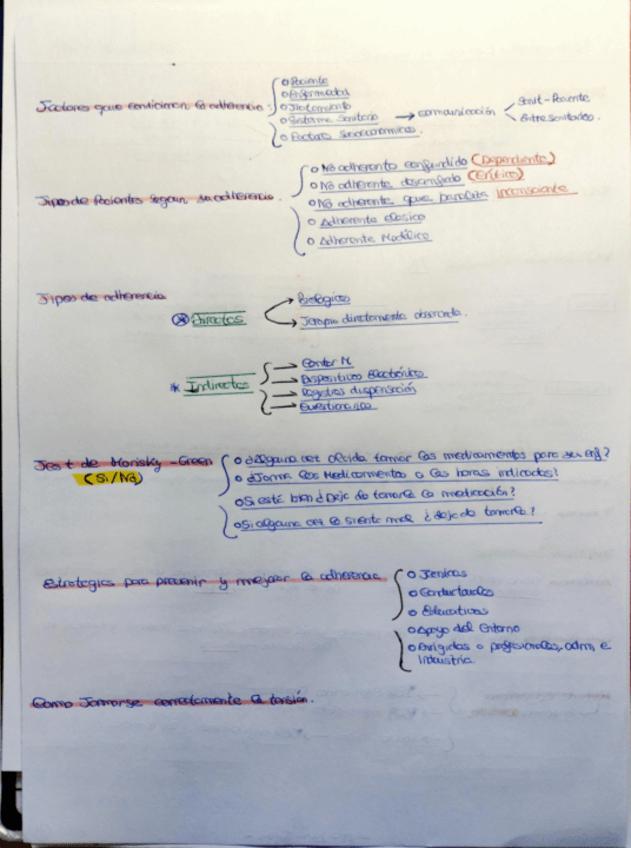 Factores que condicionan la adherencia
o Paciente
o Enfermedad
o Tratamiento
o Sistema Sanitario → comunicación
Sanit-Paciente
Entre sanitarios.
o Factores Socioeconomicos.
Tipos de Pacientes segun su adherencia.
o No adherente confundido (Dependiente)
o No adherente desconfiado (Crítico)
o No adherente que banaliza inconsciente
o Adherente clasico
o Adherente Modélico
Tipos de adherencia
* Directos
→ Biologicos
→ Terapia directamente observada.
* Indirectos
→ Contar M
→ Dispositivos electrónicos
→ Registros dispensación
→ Cuestionarios
Test de Morisky-Green
(Si/No)
o ¿Alguna vez olvida tomar los medicamentos para su enf?
o ¿Toma los Medicamentos a las horas indicadas?
o Si está bien ¿Deja de tomarse la medicación?
o Si alguna vez le sienta mal ¿deja de tomarla?
Estrategias para prevenir y mejorar la adherencia
o Tecnicas
o Conductuales
o Educativas
o Apoyo del Entorno
o Dirigidas a profesionales, adm, e
industria.
Como Tomarse correctamente la tensión.